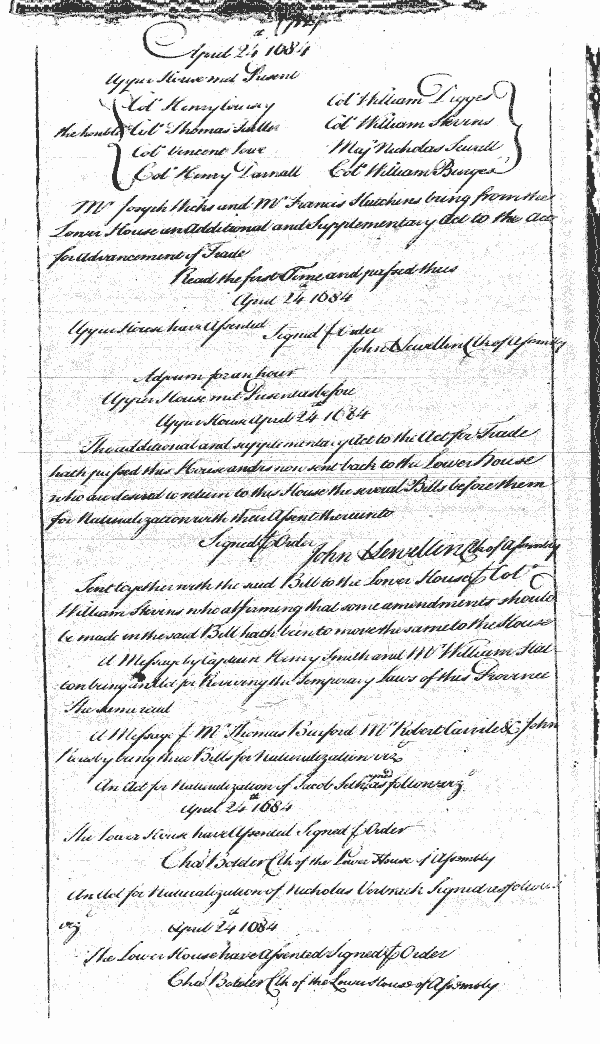 April 24th 1684
Upper House met Present
Colo Henry Coursey Colo William Digges
the honoble Colo Thomas Tailler Colo William Stevens
Colo Vincent Lowe Majr Nicholas Sewell
Colo Henry Darnall Colo William Burges
Mr Joseph Hicks and Mr Francis Hutchins bring from the
Lower House an Additional and Supplementary Act to the Act
for Advancement of Trade
Read the first Time and passed thus
April 24th 1684
Upper House have Assented Signed p Order
John Llewellin Clk of Assembly
Adjourn for an hour
Upper House met Present as before
Upper House April 24th 1684
The additional and supplementary Act to the Act for Trade
hath passed this House and is now sent back to the Lower house
who are desired to return to this House the several Bills before them
for Naturalization with their Assent thereunto
Signed p Order John Llewellin Clk of Assembly
Sent together with the said Bill to the Lower House p Colo
William Stevens who affirming that some amendments should
be made in the said Bill hath been to move the same to the House
A Message by Captain Henry Smith and Mr William
bring an Act for Reviving the Temporary Laws of this Province
The same read
A Message p Mr Thomas Burford Mr Robert Carvile & John
bring these Bills for Naturalization vizt
An Act for Naturalization of Jacob signed as follows vizt
April 24th 1684
The Lower House have Assented Signed p Order
Chas Boteler Clk of the Lower House of Assembly
An Act for Naturalization of Nicholas Signed as follows
vizt April 24th 1684
The Lower House have Assented Signed p Order
Chas Boteler Clk of the Lower House of Assembly